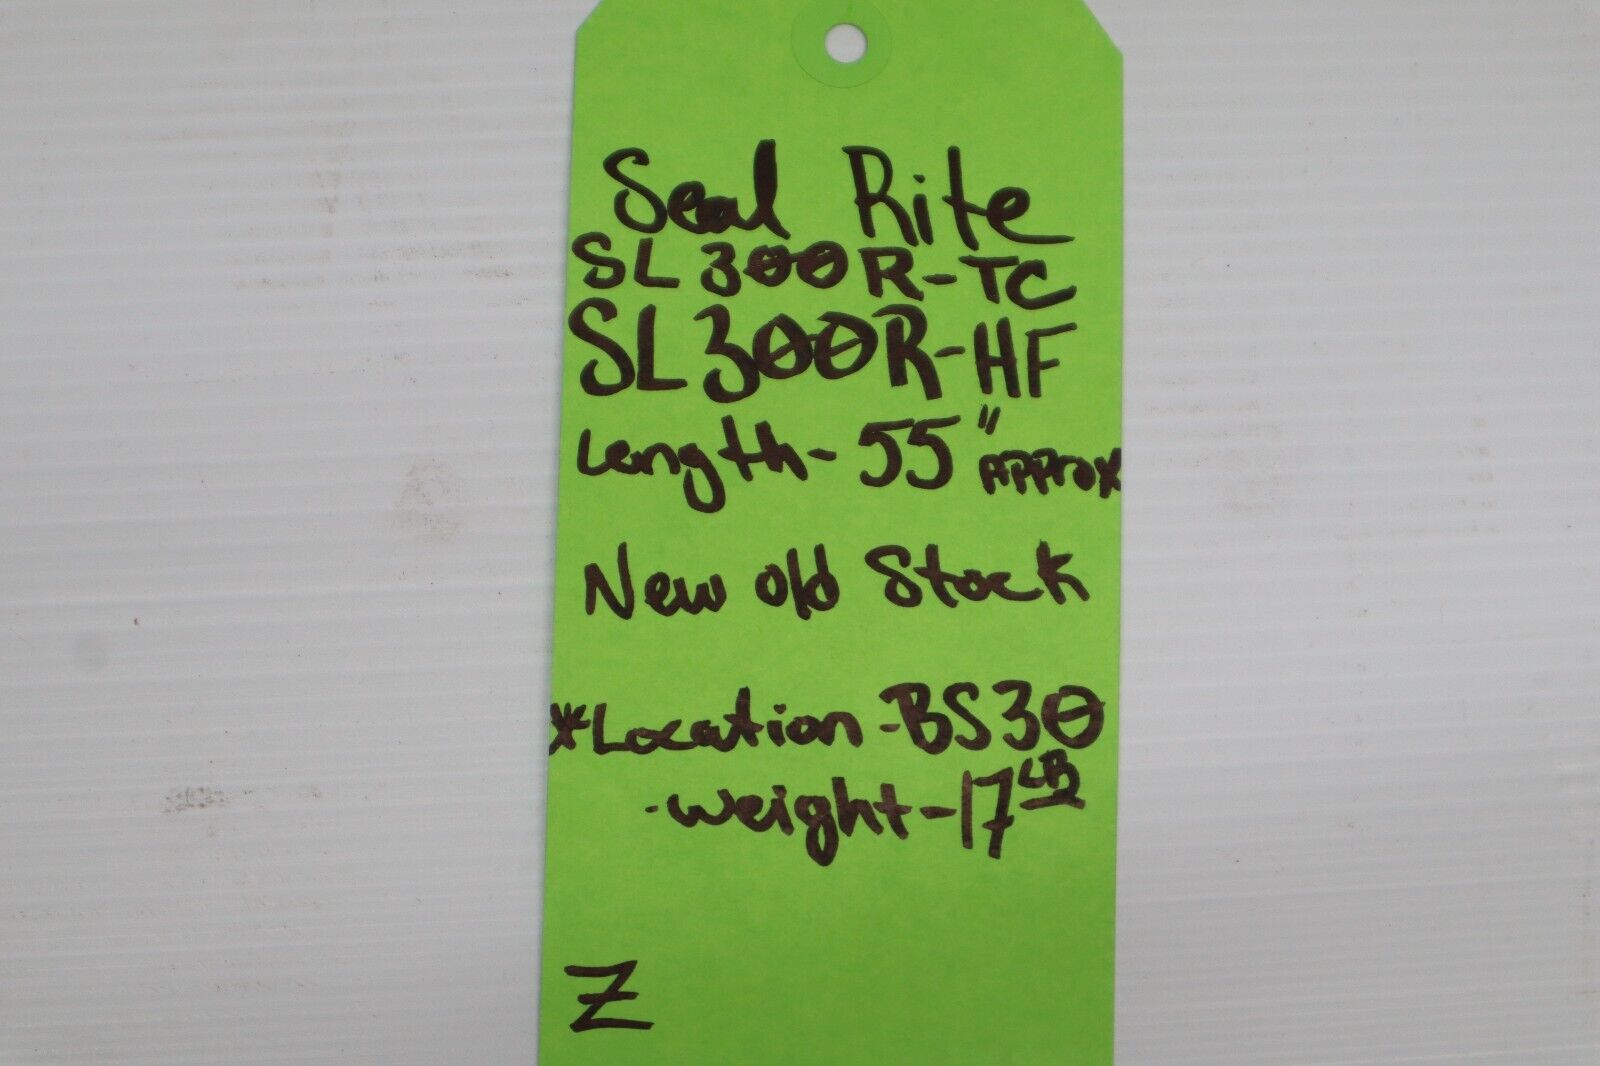 Seal Rite
SL300R-TC
SL300R-HF
Length- 55" Approx
New old Stock
*Location-BS30
-weight-17LB
Z